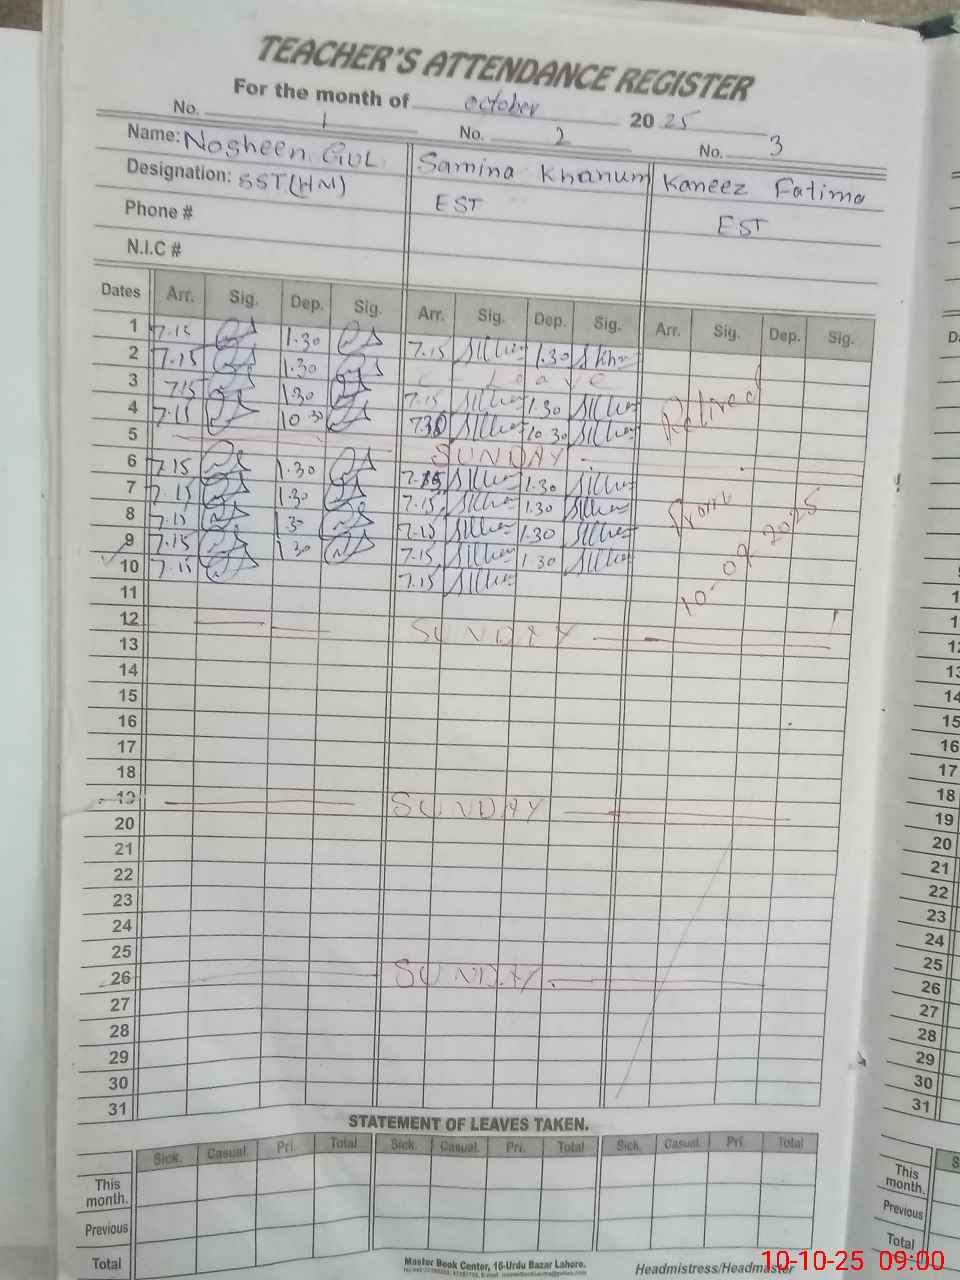 TEACHER'S ATTENDANCE REGISTER
For the month of October 2025
No. 1 No. 2 No. 3
Name: Nosheen GUL Samina Khanum Kaneez Fatima
Designation: SST(HM) EST EST
Phone #
N.I.C #
Dates Arr. Sig. Dep. Sig. Arr. Sig. Dep. Sig. Arr. Sig. Dep. Sig.
1 7.15 1.30 7.15 1.30
2 7.15 1.30 C- Leave
3 7.15 1.30 7.15 1.30
4 7.15 10.30 7.30 10.30
5 SUNDAY
6 7.15 1.30 7.15 1.30
7 7.15 1.30 7.15 1.30
8 7.15 1.30 7.15 1.30
9 7.15 1.30 7.15 1.30
10 7.15 7.15
Retired
From
10-09-2025
11
12 SUNDAY
13
14
15
16
17
18
19 SUNDAY
20
21
22
23
24
25
26 SUNDAY
27
28
29
30
31
STATEMENT OF LEAVES TAKEN.
Sick. Casual. Pri. Total Sick. Casual. Pri. Total Sick. Casual. Pri. Total
This month.
Previous
Total
Master Book Center, 16-Urdu Bazar Lahore.
Headmistress/Headmaster
10-10-25 09:00